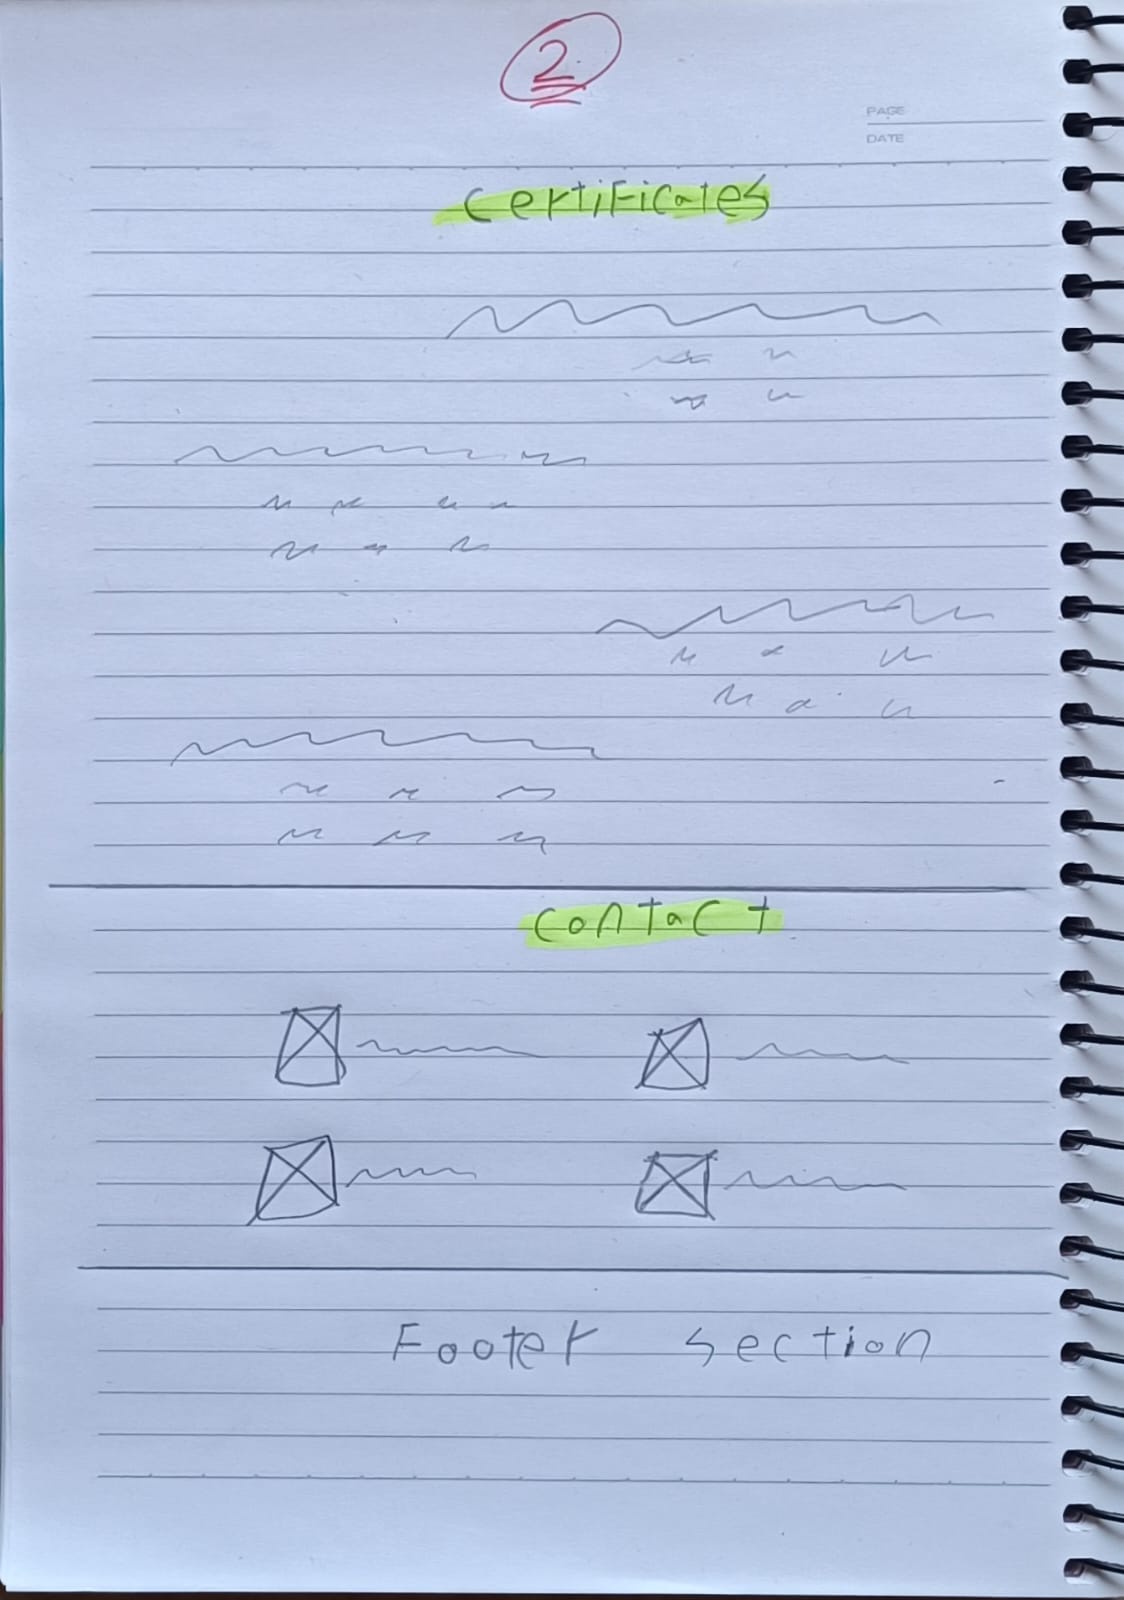 2
PAGE
DATE
Certificates
Contact
Footer section